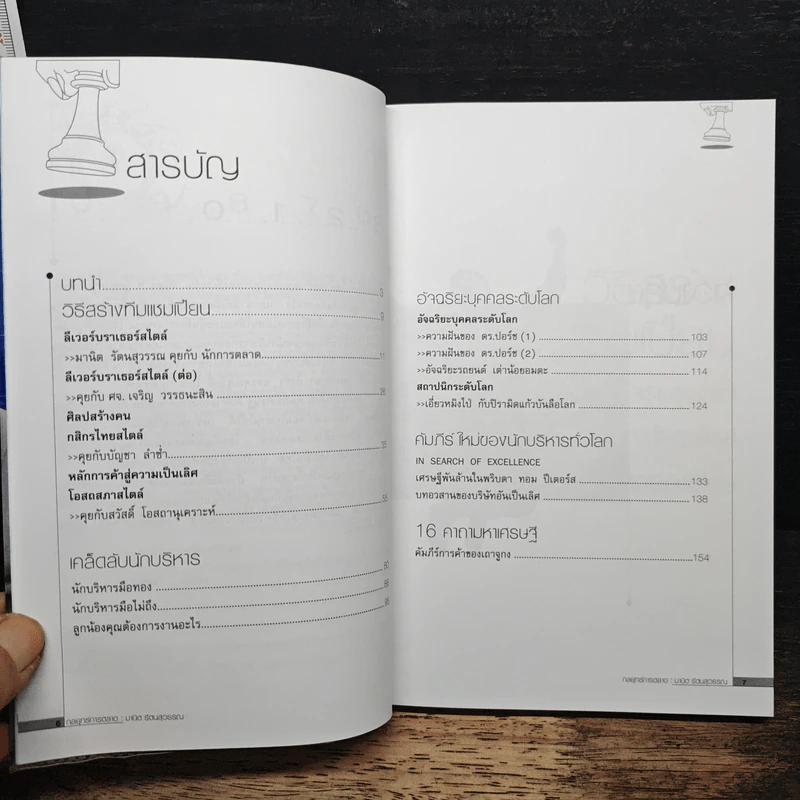 สารบัญ
บทนำ 3
วิธีสร้างทีมแชมเปียน 9
ลีเวอร์บราเธอร์สไตล์
>>มานิต รัตนสุวรรณ คุยกับ นักการตลาด 11
ลีเวอร์บราเธอร์สไตล์ (ต่อ)
>>คุยกับ ศจ. เจริญ วรรธนะสิน 26
ศิลปสร้างคน
กสิกรไทยสไตล์
>>คุยกับบัญชา ล่ำซำ 35
หลักการค้าสู่ความเป็นเลิศ
โอสถสภาสไตล์
>>คุยกับสวัสดิ์ โอสถานุเคราะห์ 55
เคล็ดลับนักบริหาร
นักบริหารมือทอง 80
นักบริหารมือไม่ถึง 88
ลูกน้องคุณต้องการงานอะไร 95
6 กลยุทธ์การตลาด : มานิต รัตนสุวรรณ
อัจฉริยะบุคคลระดับโลก
อัจฉริยะบุคคลระดับโลก
>>ความฝันของ ดร.ปอร์ช (1) 103
>>ความฝันของ ดร.ปอร์ช (2) 107
>>อัจฉริยะรถยนต์ เต่าน้อยอมตะ 114
สถาปนิกระดับโลก
>>เอี่ยวหมิงไป๋ กับปิรามิดแก้วบันลือโลก 124
คัมภีร์ใหม่ของนักบริหารทั่วโลก
IN SEARCH OF EXCELLENCE
เศรษฐีพันล้านในพริบตา ทอม ปีเตอร์ส 133
บทอวสานของบริษัทอันเป็นเลิศ 138
16 คาถามหาเศรษฐี
คัมภีร์การค้าของเถาจูกง 154
กลยุทธ์การตลาด : มานิต รัตนสุวรรณ 7